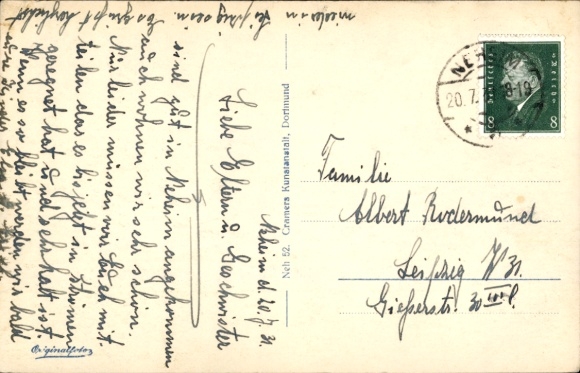 Neheim d. 20.7.31.
Liebe Eltern u. Geschwister
sind gut in Neheim angekommen
auch wohnen wir sehr schön.
Nur leider müssen wir Euch mit-
teilen das es bis jetzt in Strömen
geregnet hat und sehr kalt ist.
Wenn es so bleibt werden wir bald
wieder in Leipzig sein. Es grüßt herzlichst
Originalfoto
Neh 52. Cramers Kunstanstalt, Dortmund
NEHEIM
20.7.
8-19
Deutsches Reich
8 8
Familie
Albert Rodermund
Leipzig W 31.
Gießerstr. 30 III l.